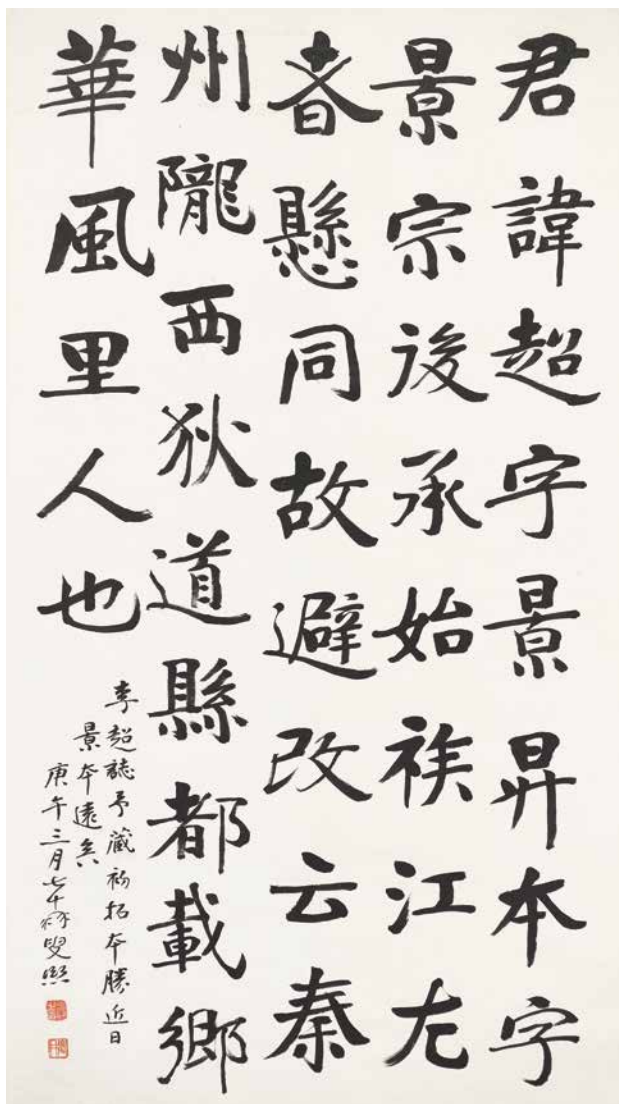 君諱超字景昇本字
景宗後承始族江左
者懸同故避改云秦
州隴西狄道縣都載鄉
華風里人也
李超誌予藏初拓本勝近日
景本遠矣
庚午三月七十叟熙